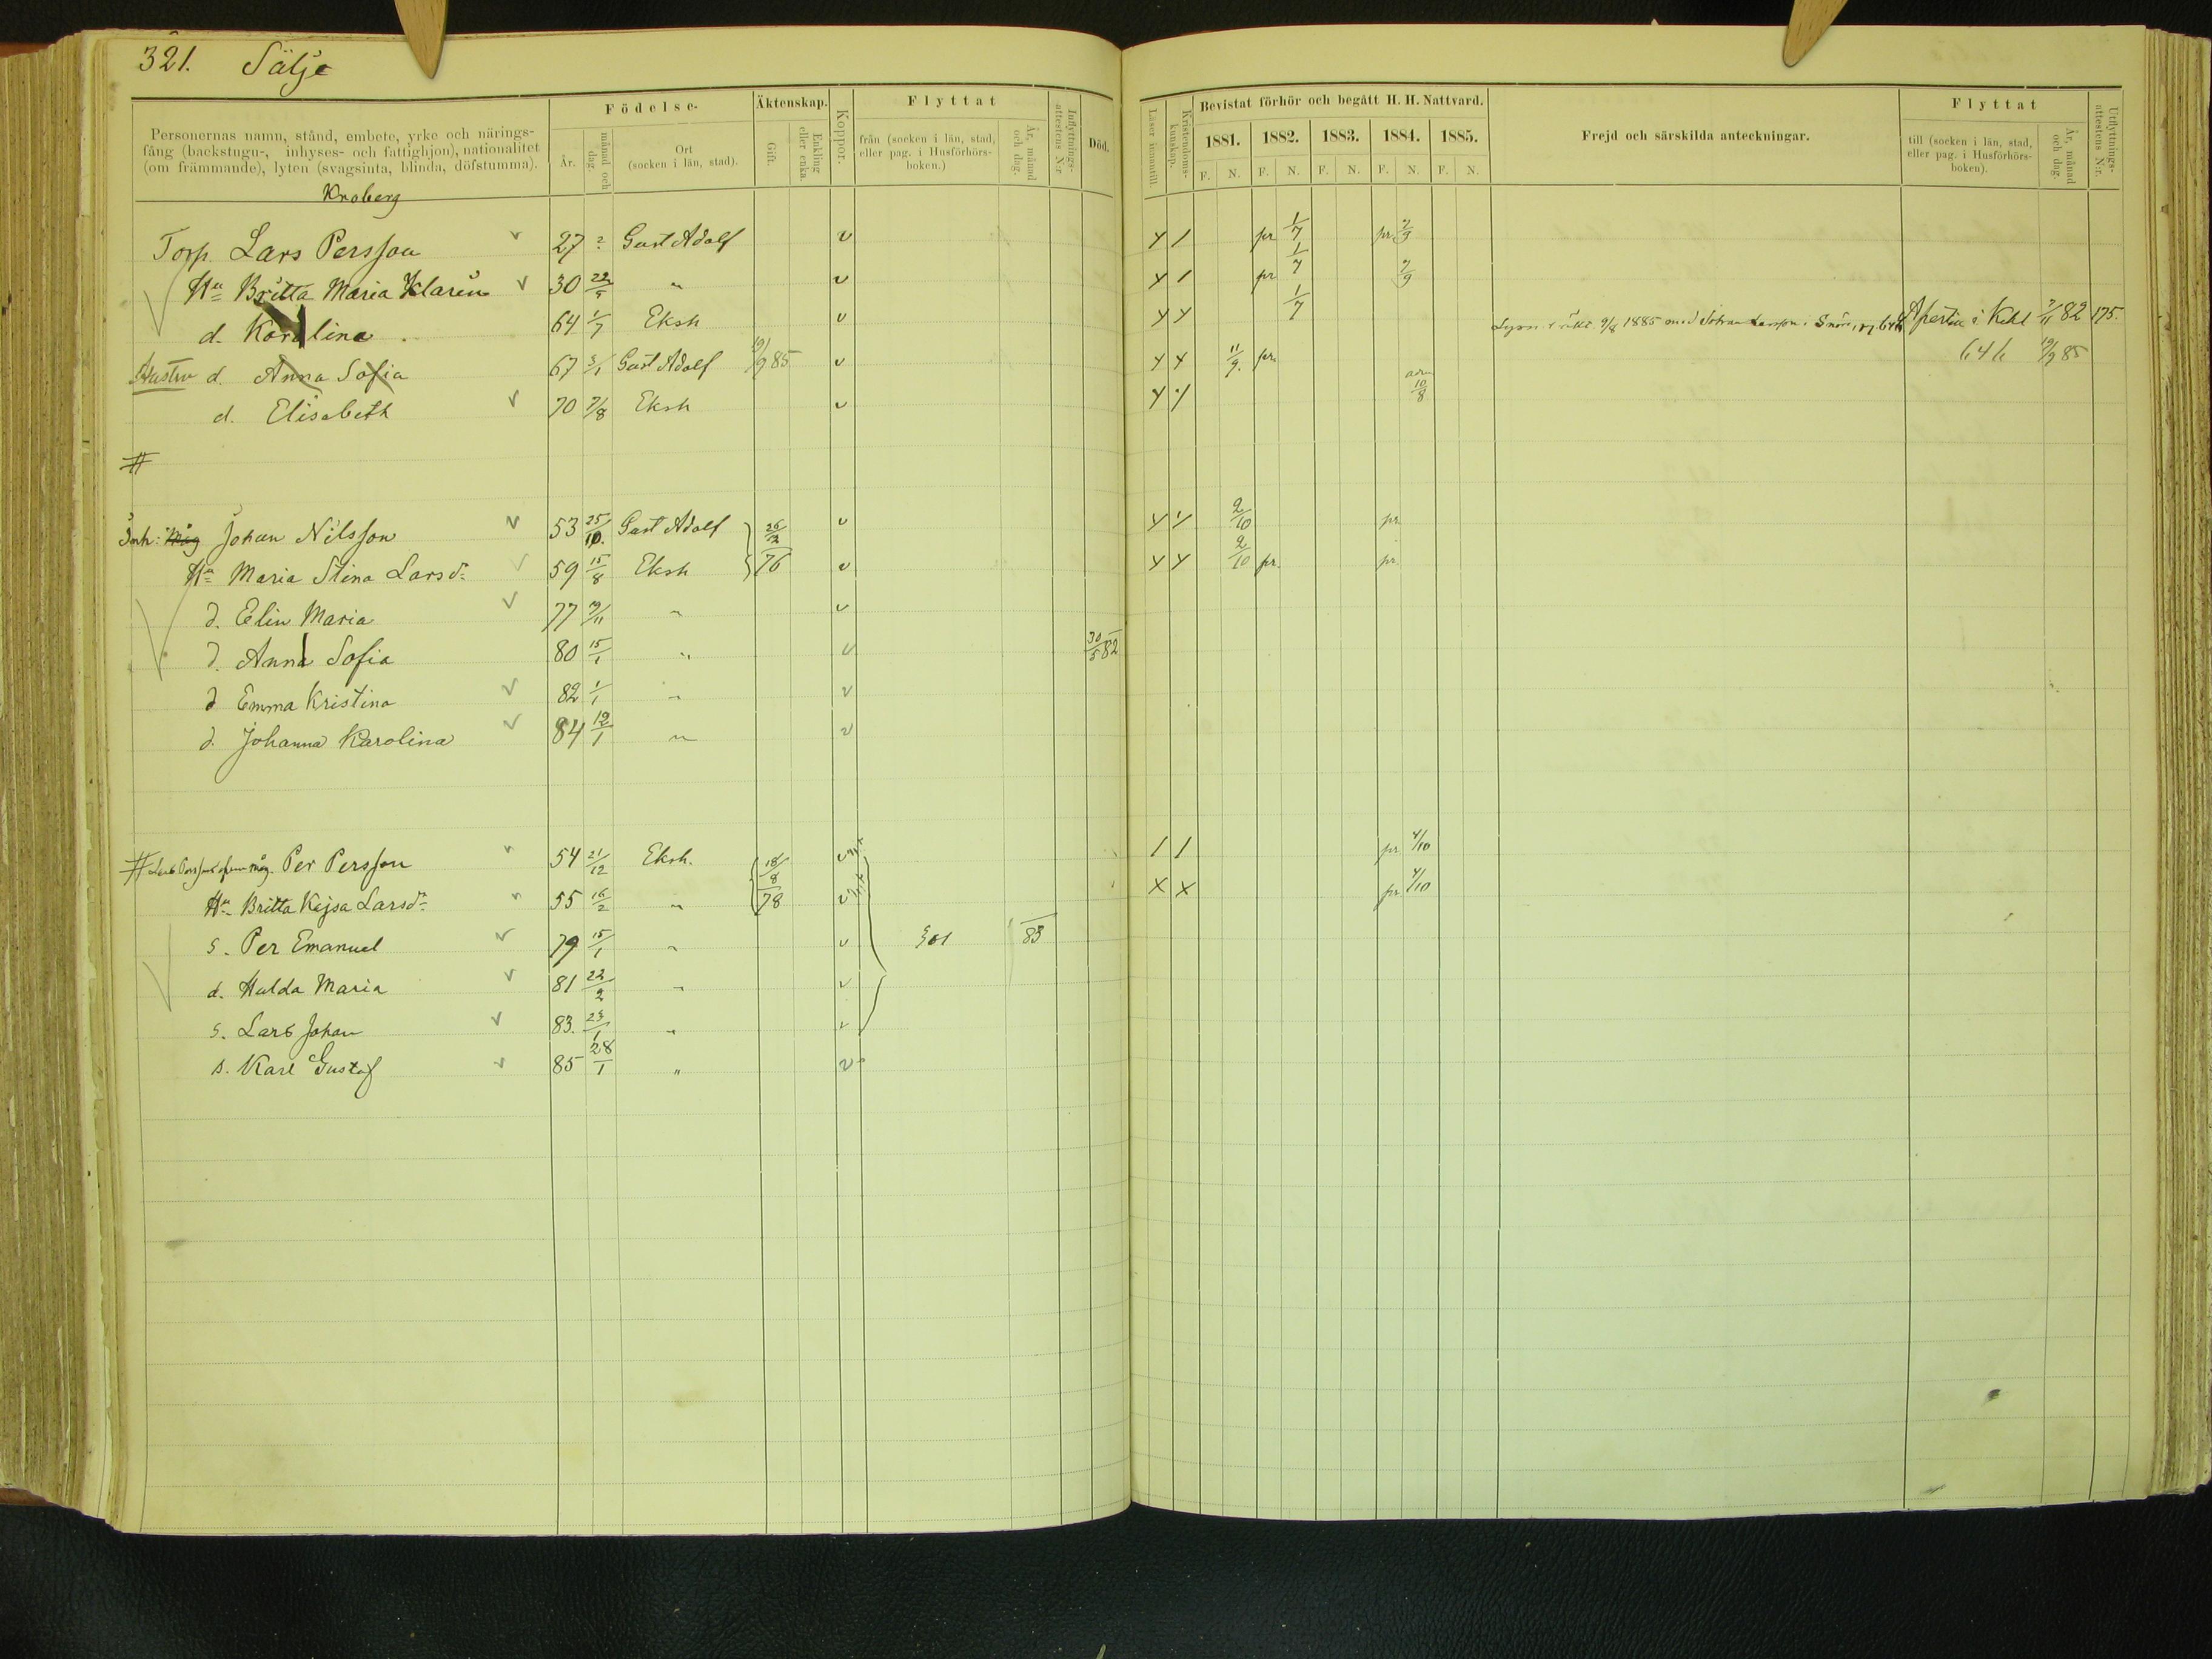 321. Sälje
Födelse- Äktenskap. Koppor. Flyttat Inflyttnings-attestens N:r Död.
Personernas namn, stånd, embete, yrke och närings-
fång (backstugu-, inhyses- och fattighjon), nationalitet
(om främmande), lyten (svagsinta, blinda, döfstumma).
År. månad och dag. Ort (socken i län, stad). Gift. Enkling eller enka. från (socken i län, stad, eller pag. i Husförhörs-boken.) År, månad och dag.
Läser innantill. Kristendoms-kunskap. Bevistat förhör och begått H. H. Nattvard. Frejd och särskilda anteckningar. Flyttat Utflyttnings-attestens N:r.
1881. 1882. 1883. 1884. 1885.
F. N. F. N. F. N. F. N. F. N.
till (socken i län, stad, eller pag. i Husförhörs-boken). År, månad och dag.
Kroberg
Torp. Lars Persson 27 ? Gust Adolf v pr 1/7 pr
Hu Britta Maria Klarin 30 " v pr 1/7
d. Karolina 64 1/7 Eksh v 1/7 1885 med Johan Apertin i 82 175.
Hustru d. Anna Sofia 67 3/1 Gust Adolf 19/9 85 v 11/9 pr. 646 19/9 85
d. Elisabeth 70 7/8 Eksh v 10/8
#
Inh: Måg Johan Nilsson 53 25/10. Gust Adolf 26/12 76 v 2/10 pr
Hu Maria Stina Larsdr 59 15/8 Eksh v 2/10 pr pr.
d. Elin Maria 77 " v
d. Anna Sofia 80 15/1 " v 30/5 82
d Emma Kristina 82 1/1 " v
d. Johanna Karolina 84 12/1 " v
# Lars Perssons måg. Per Persson 54 21/12 Eksh. 18/8 78 v pr 4/10
Hu Britta Kajsa Larsdr 55 16/2 " v pr 4/10
s. Per Emanuel 79 15/1 " v 301 83
d. Hulda Maria 81 22/2 " v
s. Lars Johan 83. 23/1 " v
s. Karl Gustaf 85 28/1 " v